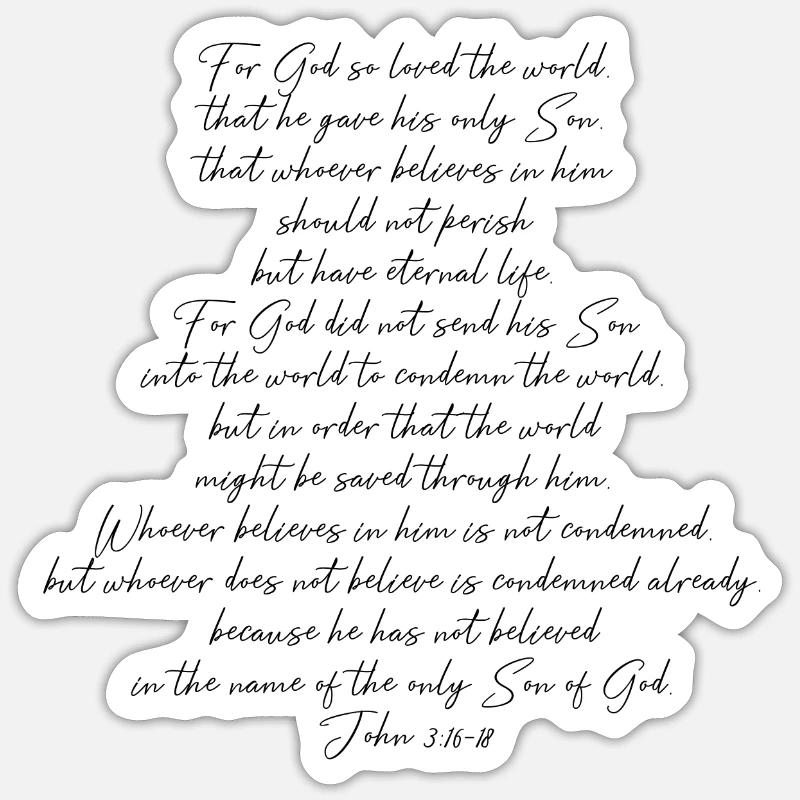 For God so loved the world.
that he gave his only Son.
that whoever believes in him
should not perish
but have eternal life.
For God did not send his Son
into the world to condemn the world.
but in order that the world
might be saved through him.
Whoever believes in him is not condemned.
but whoever does not believe is condemned already.
because he has not believed
in the name of the only Son of God.
John 3:16-18